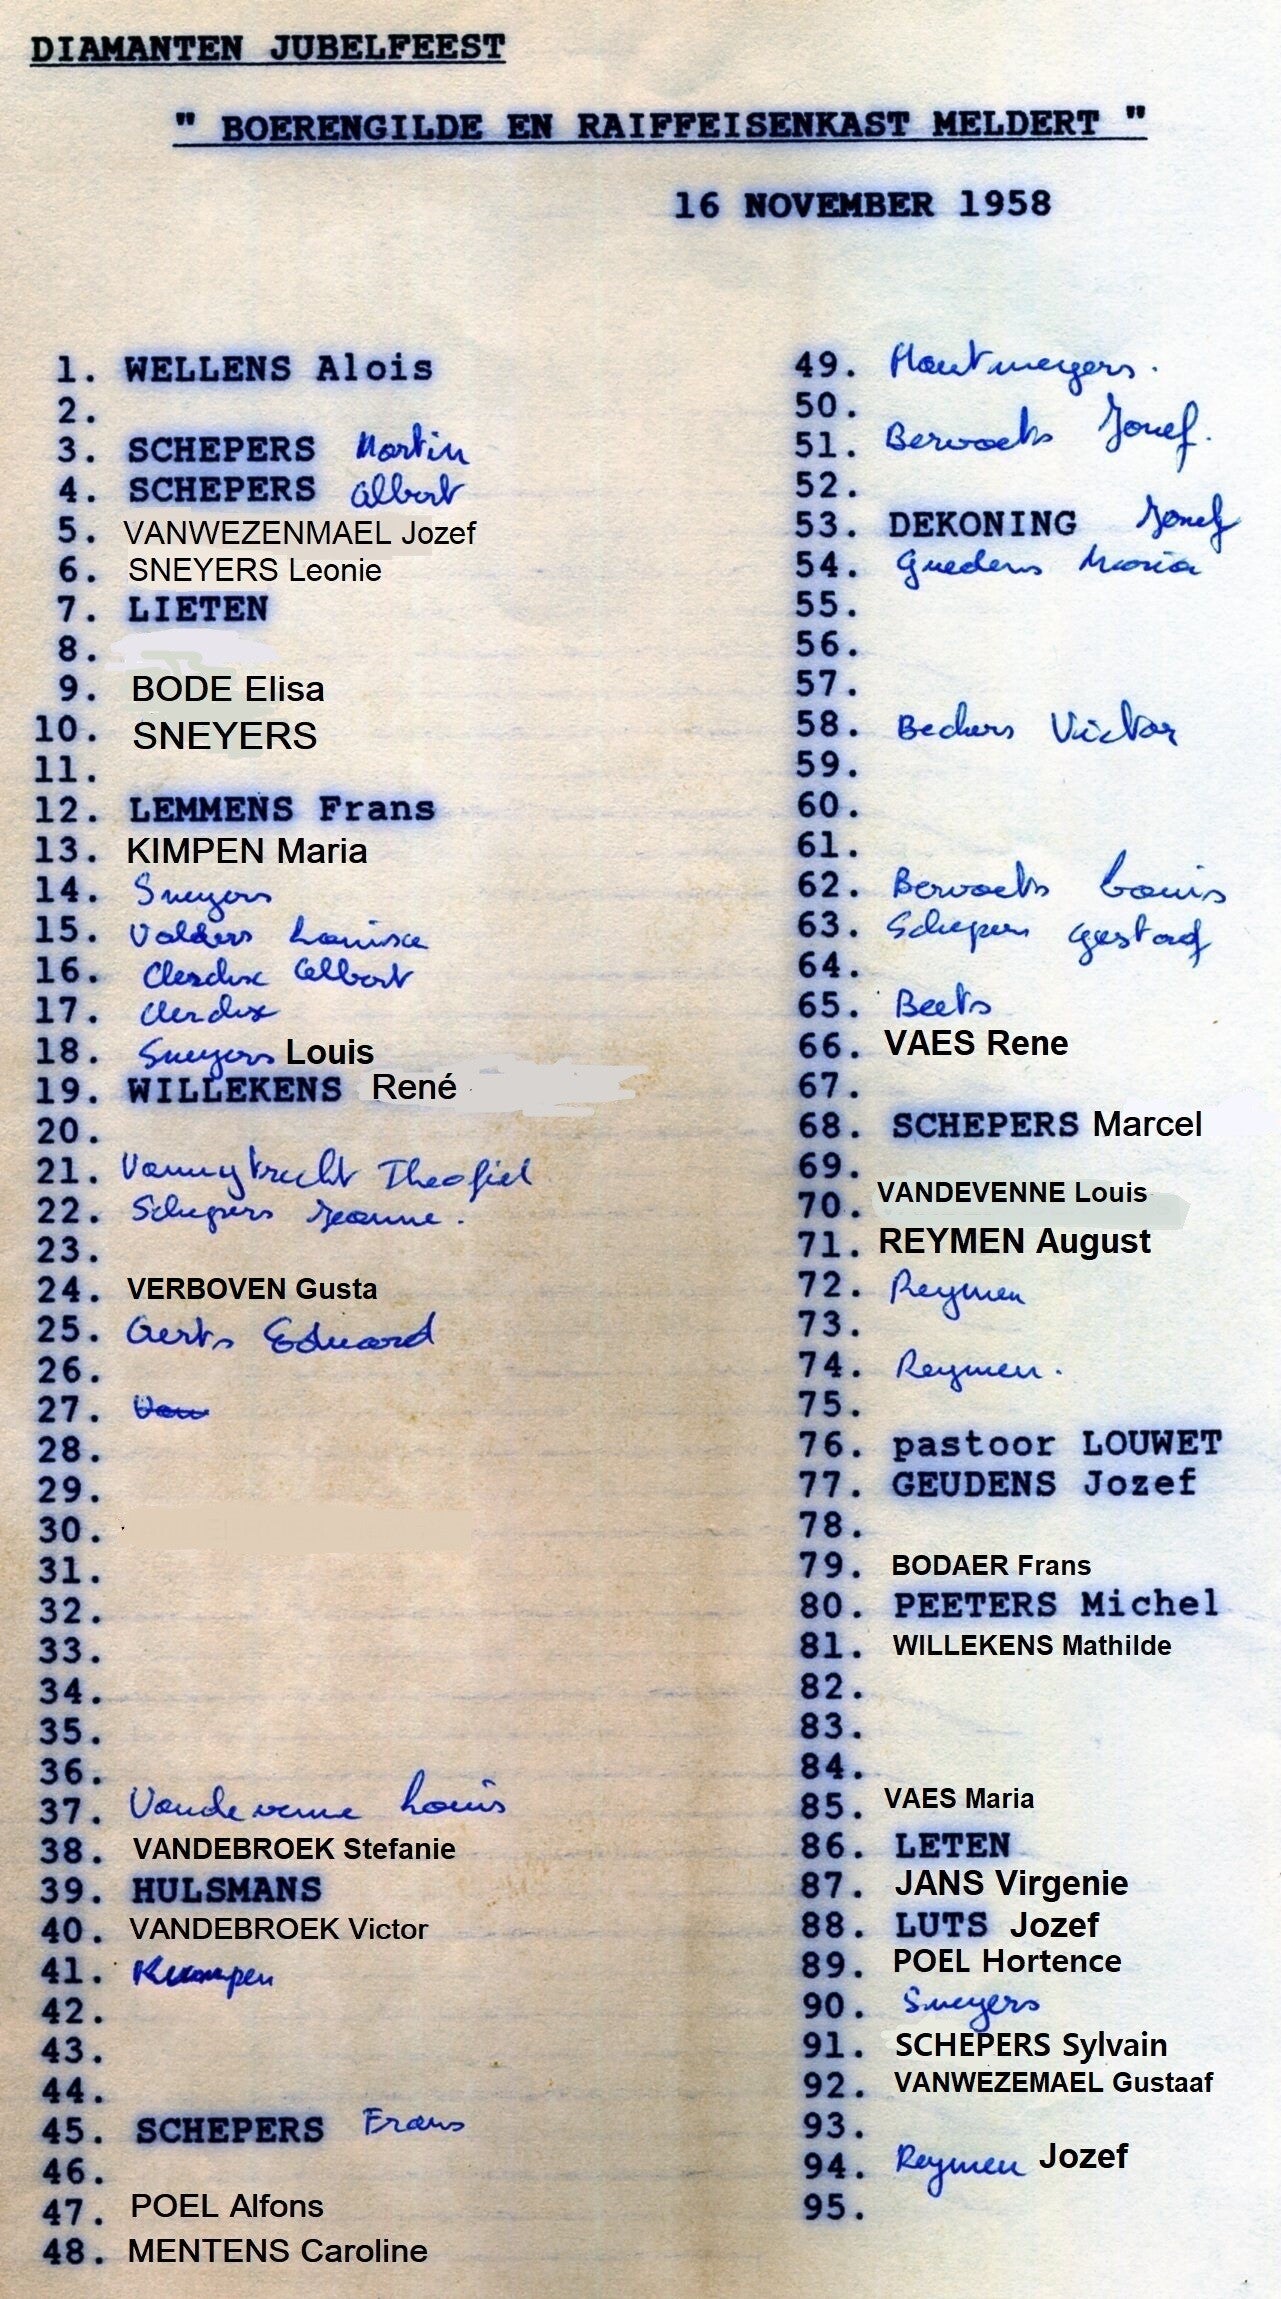 DIAMANTEN JUBELFEEST
" BOERENGILDE EN RAIFFEISENKAST MELDERT "
16 NOVEMBER 1958
1. WELLENS Alois
2.
3. SCHEPERS Martin
4. SCHEPERS Albert
5. VANWEZENMAEL Jozef
6. SNEYERS Leonie
7. LIETEN
8.
9. BODE Elisa
10. SNEYERS
11.
12. LEMMENS Frans
13. KIMPEN Maria
14. Sneyers
15. Valders Louisa
16. Clerdix Albert
17. Clerdix
18. Sneyers Louis
19. WILLEKENS René
20.
21. Vannytrecht Theofiel
22. Schepers Jeanne.
23.
24. VERBOVEN Gusta
25. Aerts Eduard
26.
27. Van
28.
29.
30.
31.
32.
33.
34.
35.
36.
37. Vandevenne Louis
38. VANDEBROEK Stefanie
39. HULSMANS
40. VANDEBROEK Victor
41. Kumpen
42.
43.
44.
45. SCHEPERS Frans
46.
47. POEL Alfons
48. MENTENS Caroline
49. Houtmeyers.
50.
51. Bervoets Jozef.
52.
53. DEKONING Jozef
54. Guedens Maria
55.
56.
57.
58. Beckers Victor
59.
60.
61.
62. Bervoets Louis
63. Schepers Gestaaf
64.
65. Beets
66. VAES Rene
67.
68. SCHEPERS Marcel
69.
70. VANDEVENNE Louis
71. REYMEN August
72. Reymen
73.
74. Reymen.
75.
76. pastoor LOUWET
77. GEUDENS Jozef
78.
79. BODAER Frans
80. PEETERS Michel
81. WILLEKENS Mathilde
82.
83.
84.
85. VAES Maria
86. LETEN
87. JANS Virgenie
88. LUTS Jozef
89. POEL Hortence
90. Sneyers
91. SCHEPERS Sylvain
92. VANWEZEMAEL Gustaaf
93.
94. Reymen Jozef
95.